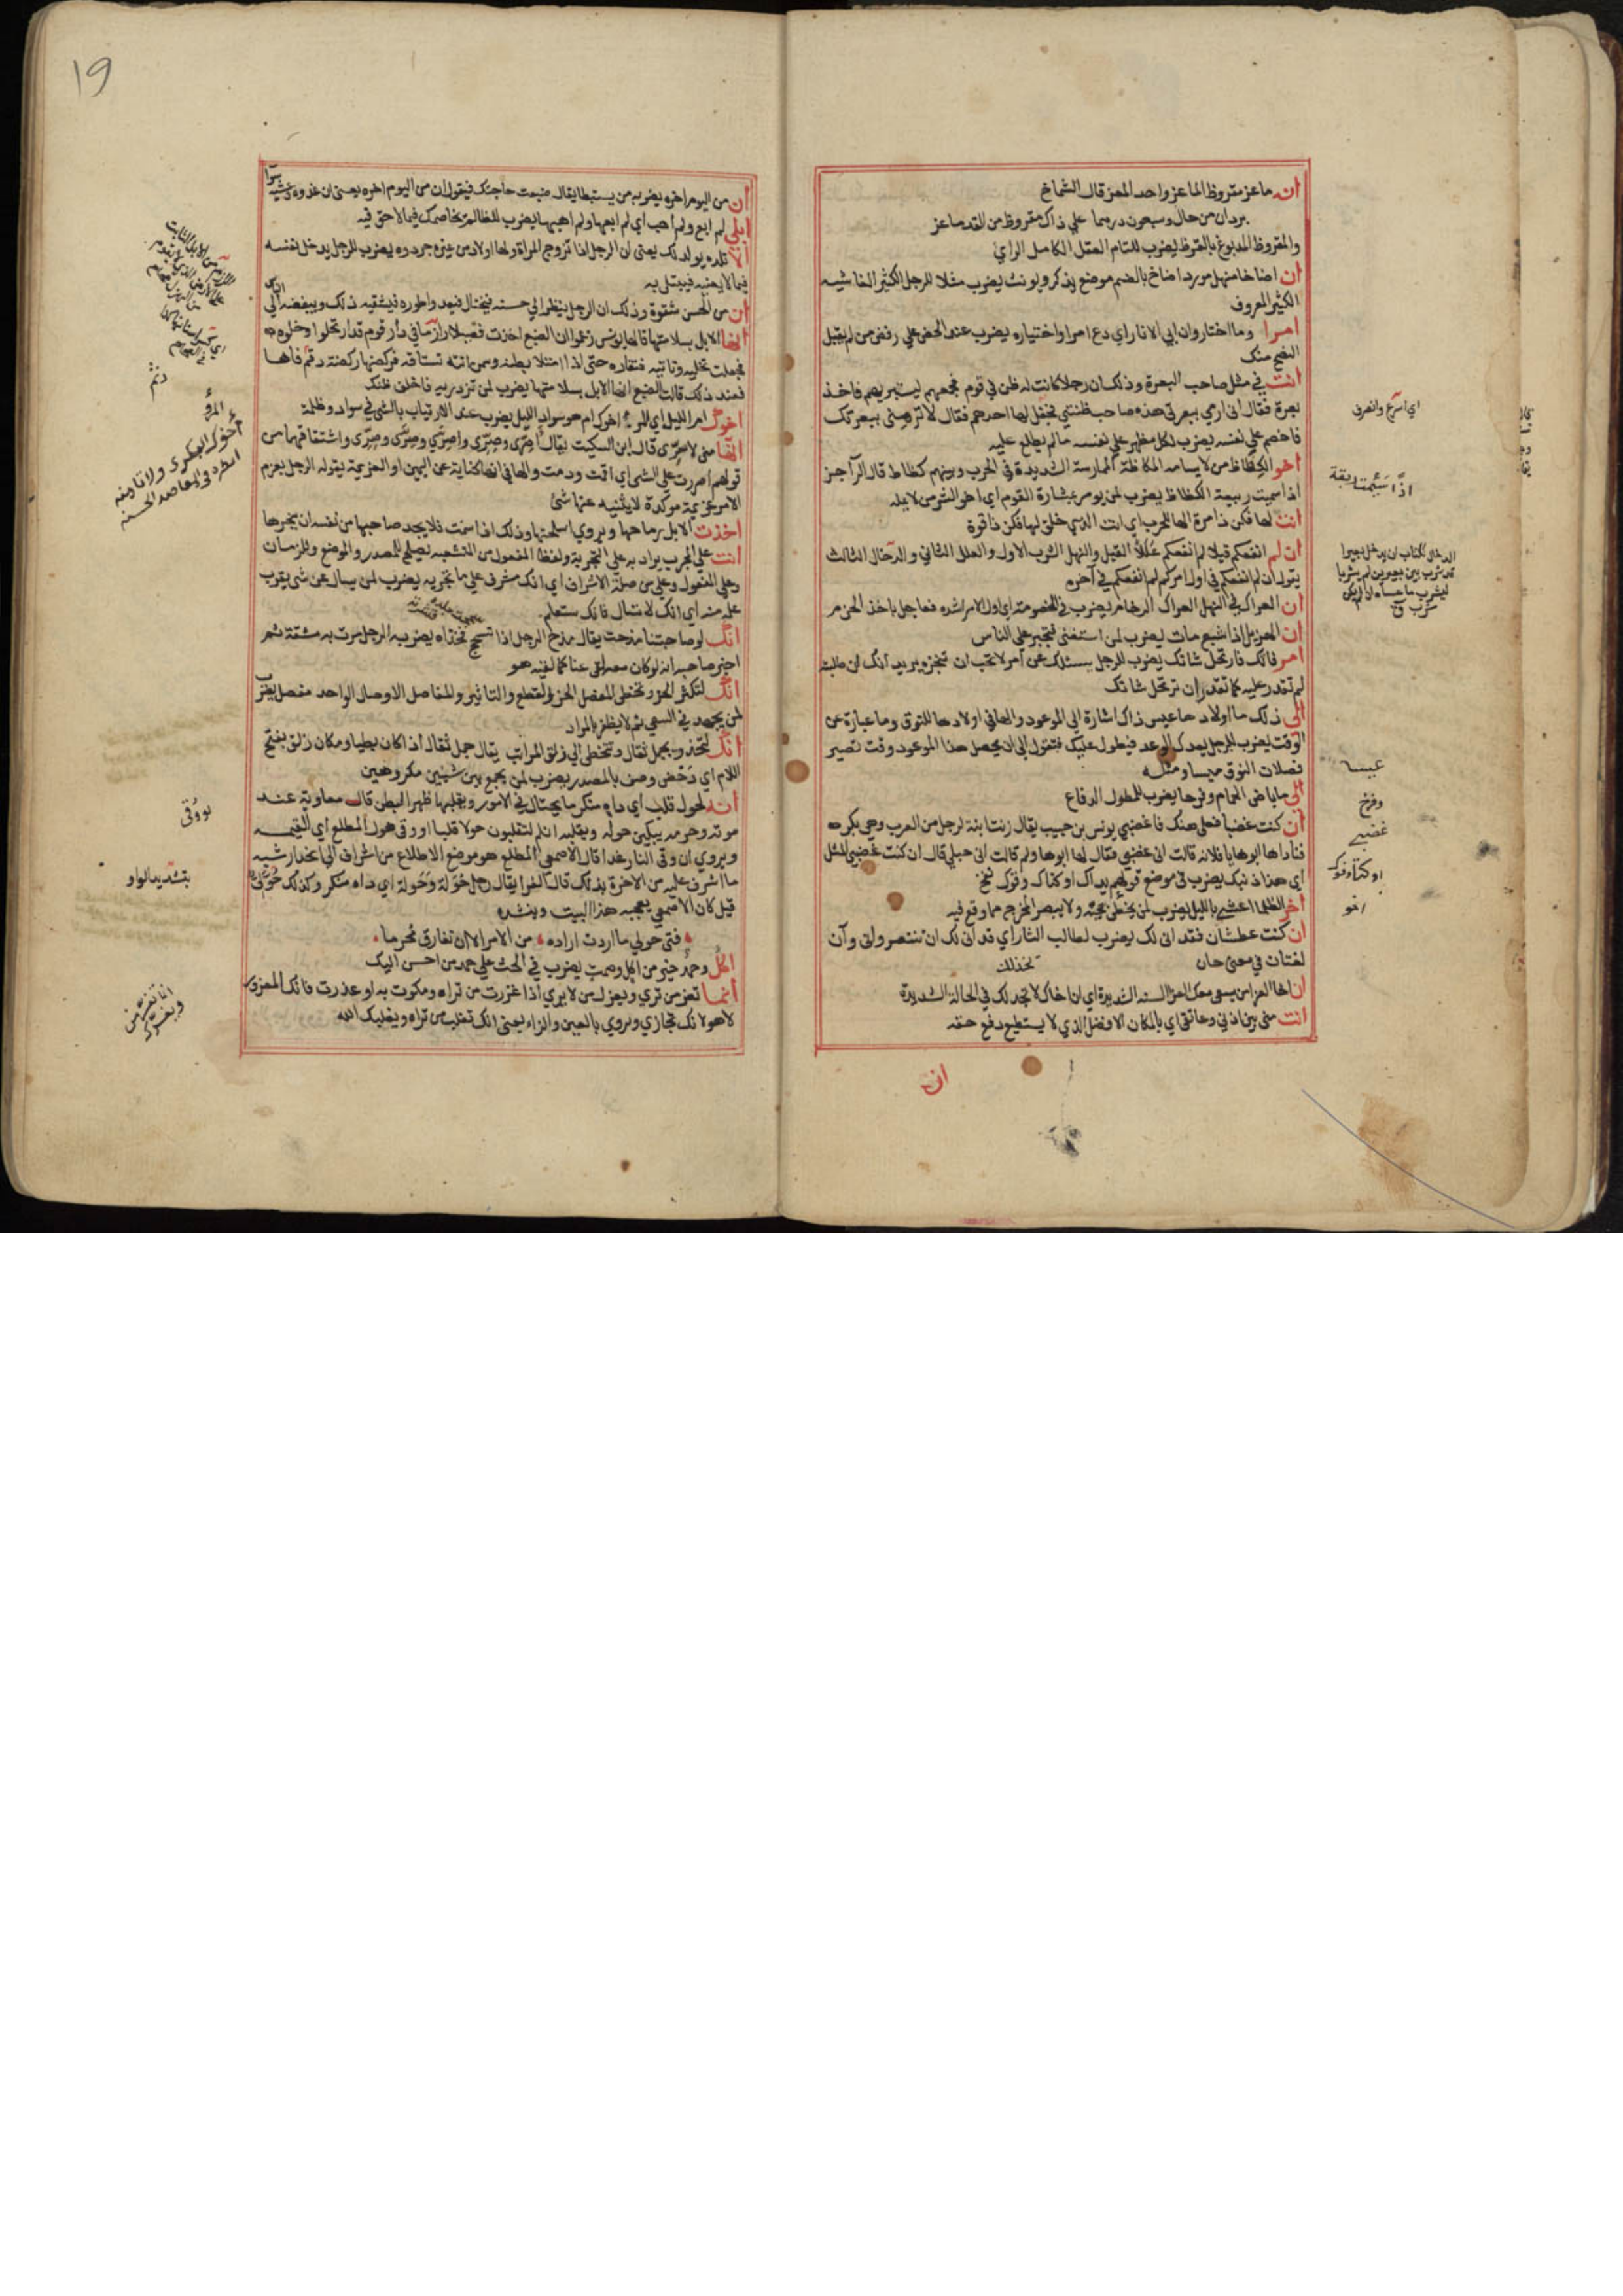 انه ماعز مقروظ الماعز واحد المعز قال الشماخ
بردان من خال وسبعون درهما على ذاك مقروظ من القد ماعز
والمقروظ المدبوغ بالقرظ يضرب للتام العقل الكامل الراي
ان اضاخا منهل مورد اضاخ بالضم موضع يذكر ويونث يضرب مثلا للرجل الكثير الغاشيه
الكثير المعروف
امرا وما اختار وان ابي الا النار اي دع امرا واختياره يضرب عند الحض علي رفض من لم يقبل
النصح منك
انت في مثل صاحب البعرة وذلك ان رجلا كانت له ظن في قوم فجمعهم ليستبريهم فاخذ
بعرة فقال اني ارمي ببعرتي هذه صاحب ظنتي فجفل لها احدهم فقال لا ترمني ببعرتك
فاخصم علي نفسه يضرب لكل مظهر علي نفسه ما لم يطلع عليه
اخو الكظاظ من لا يسامه المكاظة الممارسة الشديدة في الحرب وبينهم كظاظ قال الراجز
اذ سميت ربيعة الكظاظ يضرب لمن يومر بمشارة القوم اي اخو الشر من لا يمله
انت لها فكن ذا مرة الها للحرب اي انت الذي خلق لها فكن ذا قوة
ان لم انفعكم قبلا لم انفعكم عللا القبل والنهل الشرب الاول والعلل الثاني والدخال الثالث
يقول ان لم انفعكم في اول امركم لم انفعكم في آخره
ان العراك في النهل العراك الزحام يضرب في الخصومة اي اول الامر اشده فعاجل باخذ الحزم
ان الهزيل اذا شبع مات يضرب لمن استغنى فتجبر على الناس
امر فاتك فارتحل شاتك يضرب للرجل يسئلك عن امر لا تحب ان تخبره يريد انك ان طلبته
لم تقدر عليه كما لا تقدر ان ترتحل شاتك
الى ذلك ما اولادها عيس ذاك اشارة الى الموعود والها في اولادها للنوق وما عبارة عن
الوقت يضرب للرجل يعدك الوعد فيطول عليك فتقول الى ان يحصل هذا الموعود وقت تصير
فصلان النوق عيسا ومثله
الى ما باض الحمام وفرخا يضرب للمطول الدفاع
ان كنت غضبا فعلى هنك فاغضبي يونس بن حبيب يقال زنت ابنة لرجل من العرب وهي بكر
فناداها ابوها يا فلانه قالت اني غضبي فقال لها ابوها ولم قالت اني حبلي قال ان كنت غضبي المثل
اي هذا ذنبك يضرب في موضع قولهم يداك اوكتاك وفوك نفخ
اخو الظلما اعشى بالليل يضرب لمن يخطي حجته ولا يبصر المخرج مما وقع فيه
ان كنت عطشان فقد انى لك يضرب لطالب الثار اي قد اني لك ان تنتصر واني وآن
لغتان في معنى حان
ان اخا العزا من يسعى معك العزا السنه الشديدة اي ان اخاك لا يخذلك في الحالة الشديدة
انت مني بين اذني وعاتقي اي بالمكان الافضل الذي لا يستطيع رفع حقه
انك
بقة
عيسا
وفرخ
غضبي
اخو
19
ان من اليوم اخره يضرب من يستبطا يقال ضيعت حاجتك فيقول ان من اليوم اخره يعني ان غدوه وعشيه
سوا
ابلي لم ابع ولم اهب اي لم ابعها ولم اهبها يضرب للظالم يخاصمك فيما لا حق فيه
الا تلده يولد لك يعنى ان الرجل اذا تزوج المراة ولها اولاد من غيره جردوه يضرب للرجل يدخل نفسه
فيما لا يعنيه فيبتلى به
ان من الحسن شقوة وذلك ان الرجل ينظر الى حسنه فيختال فيعد واطوره فيشقيه ذلك ويبغضه الى
الناس
انها الابل بسلامتها قال يونس زعموا ان الضبع اخذت فصيلا رازما في دار قوم قد ارتحلوا وخلوه
فجعلت تخليه وتاتيه فتقاره حتى اذا امتلا بطنه وسمن اتته تستاقه فركضها ركضة دقم فاها
فعند ذلك قالت الضبع انها الابل بسلامتها يضرب لمن تزدريه فاخلف ظنك
اخوك ام الليل اي المرئ اخوك ام هو سواد الليل يضرب عند الارتياب بالشي في سواد وظلمة
انها منى لاصرى قال ابن السكيت يقال اصرى وصرى واصري وصرى وصرى واشتقاقهما من
قولهم اصررت على الشي اي اقمت ودمت والها في انها كناية عن اليمين او العزيمة يقوله الرجل يعزم
الامر عزيمة موكدة لا يثنيه عنها شئ
اخذت الابل رماحها ويروي اسلحتها وذلك اذا سمنت فلا يجد صاحبها من نفسه ان ينحرها
انت على المجرب يراد به على التجربة ولفظ المفعول من المنشعبه يصلح للمصدر والموضع والزمان
وعلى المفعول وعلى من صلة الاشراف اي انك مشرف علي ما تجربه يضرب لمن يسال عن شي يقرب
علمه منه اي انك لا تسال فانك ستعلم
انك لو صاحبتنا مذحت يقال مذح الرجل اذا انسحج فخذاه يضرب الرجل مرت به مشقة ثم
اخبر صاحبه انه لو كان معه لقى عنا كما لقيه هو
انك لتكثر الحز وتخطي المفصل الحز القطع والتاثير والمفاصل الاوصال الواحد مفصل يضرب
لمن يجهد في السعي ثم لا يظفر بالمراد
انك لتحذو بجمل ثقال وتتخطى الى زلق المراتب يقال جمل ثقال اذا كان بطيا ومكان زلق بفتح
اللام اي دحض وصف بالمصدر يضرب لمن يجمع بين شيئين مكروهين
انه لحول قلب اي داه منكر ما يحتال في الامور ويقلبها ظهرا لبطن قال معاوية عند
موته وحرمه يبكين حوله ويقلبنه انكم لتقلبون حولا قلبا لو وقى هول المطلع اي القيمه
ويروي ان وقى النار غدا قال الاصمعي المطلع هو موضع الاطلاع من اشراف الى انحدار شبه
ما اشرف عليه من الاخرة بذلك قال الفرا يقال رجل حولة وحولة اي داه منكر وكذلك حولي
قيل كان الاصمعي يعجبه هذا البيت وينشده
فتى حولي ما اردت اراده من الامر الا ان تفارق محرما
اكل وحمد خير من اكل وصمت يضرب في الحث علي حمد من احسن اليك
انما تغز من ترى ويغزك من لا يري اذا غزرت من تراه ومكرت به او غدرت فانك المغرور
لا هو لانك تجازي ويروي بالعين والزاء يعنى انك تغلب من تراه ويغلبك الله
بتشديد الواو
المرؤ